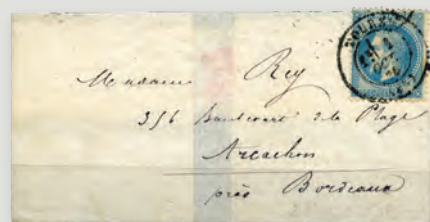 Madame Rey
356 Boulevart de la Plage
Arcachon
près Bordeaux